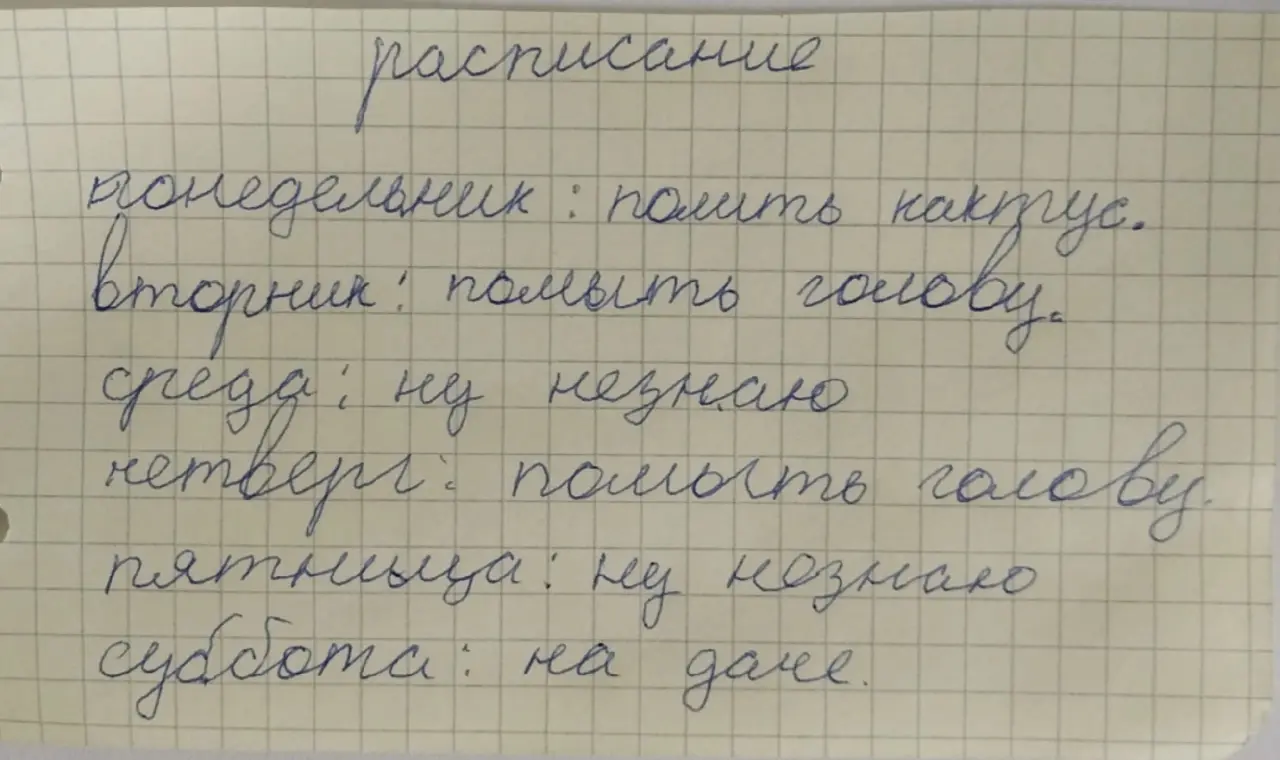 расписание
понедельник: полить кактус.
вторник: помыть голову.
среда: ну незнаю
четверг: помыть голову.
пятница: ну незнаю
суббота: на даче.